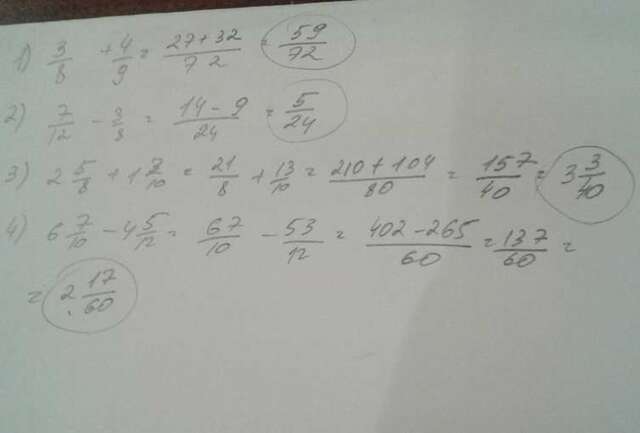 1) 3/8 + 4/9 = 27+32/72 = 59/72
2) 7/12 - 3/8 = 14-9/24 = 5/24
3) 2 5/8 + 1 3/10 = 21/8 + 13/10 = 210+104/80 = 157/40 = 3 3/40
4) 6 7/10 - 4 5/12 = 67/10 - 53/12 = 402-265/60 = 137/60 =
= 2 17/60